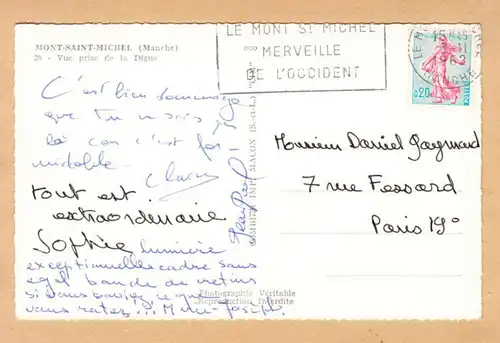 MONT-SAINT-MICHEL (Manche)
28 - Vue prise de la Digue
LE MONT St MICHEL
MERVEILLE
DE L'OCCIDENT
LE M
15H15
1962
MANCHE
0,20
C'est bien dommage
que tu ne sois
là car c'est for-
midable.
Claire
tout est
extraordinaire
Sophie
Jean Pierre
lumière
exceptionnelle cadre sans
egal bande de cretins
si vous saviez ce que
vous ratez... Marie-Joseph.
Monsieur Daniel
7 rue Fessard
Paris 19°
COMBIER IMPR MACON (S.-et-L.)
Photographie Véritable
Reproduction Interdite